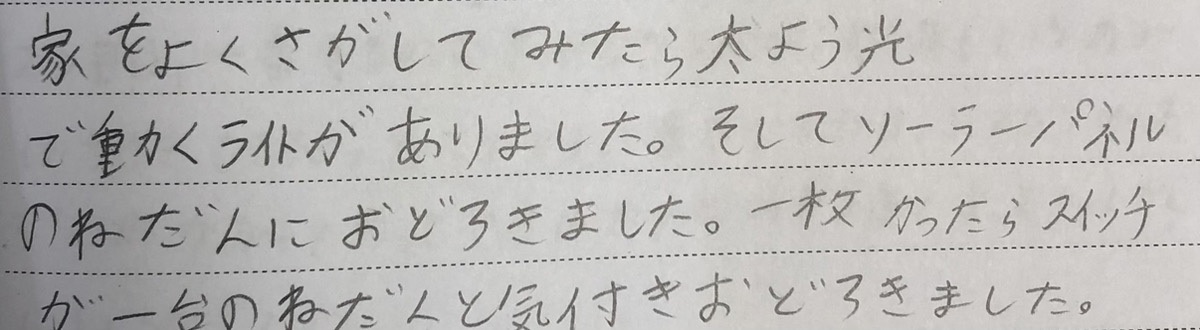 家をよくさがしてみたら太よう光
で動くライトがありました。そしてソーラーパネル
のねだんにおどろきました。一枚かったらスイッチ
が一台のねだんと気付きおどろきました。